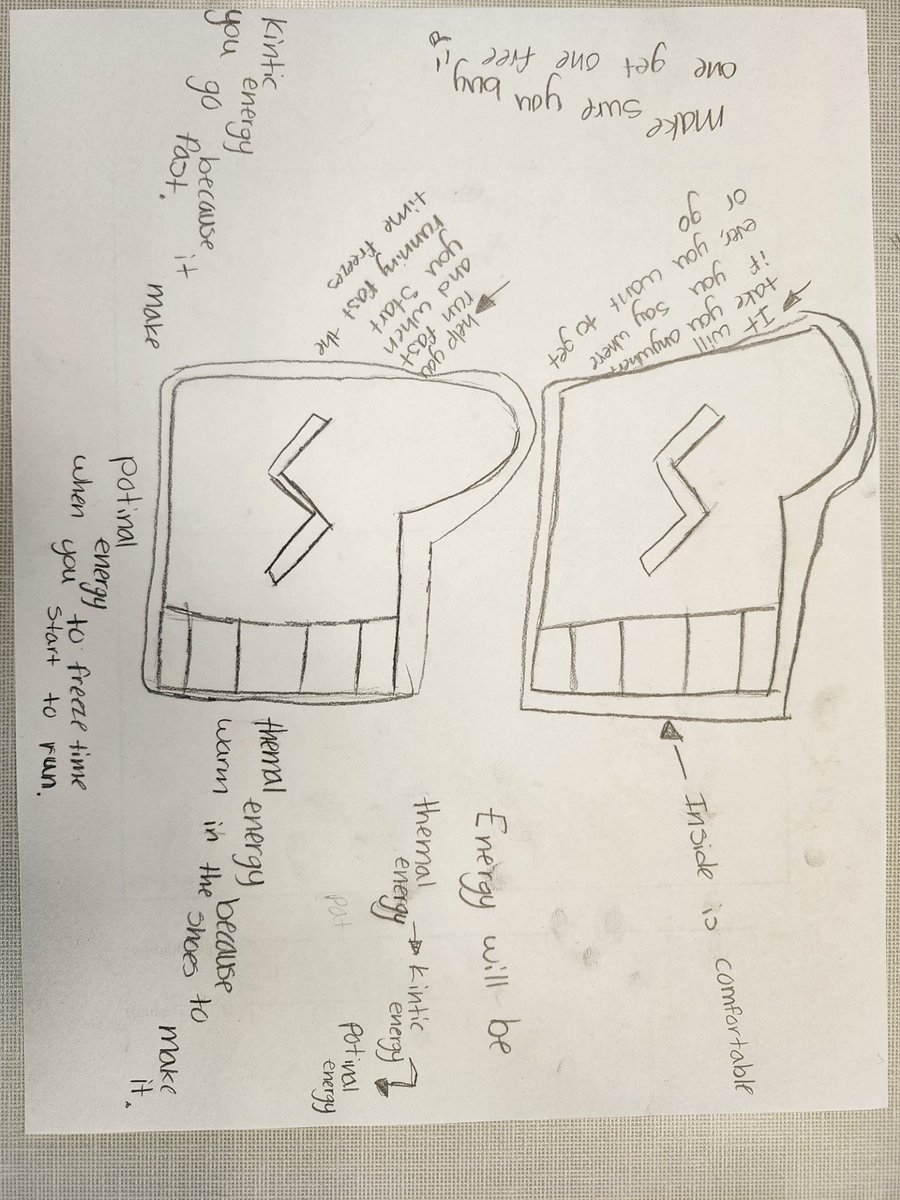 Inside is comfortable
It will
take you anywhere
if you say where
ever, you want to get
or go
make sure you buy
one get one free
Energy will be
themal energy → kintic energy
potinal energy
pot
help you
run fast
and when
you start
running fast the
time freezes
Kintic energy because it make
you go fast.
themal energy because
warm in the shoes to
make it.
potinal energy to freeze time
when you start to run.